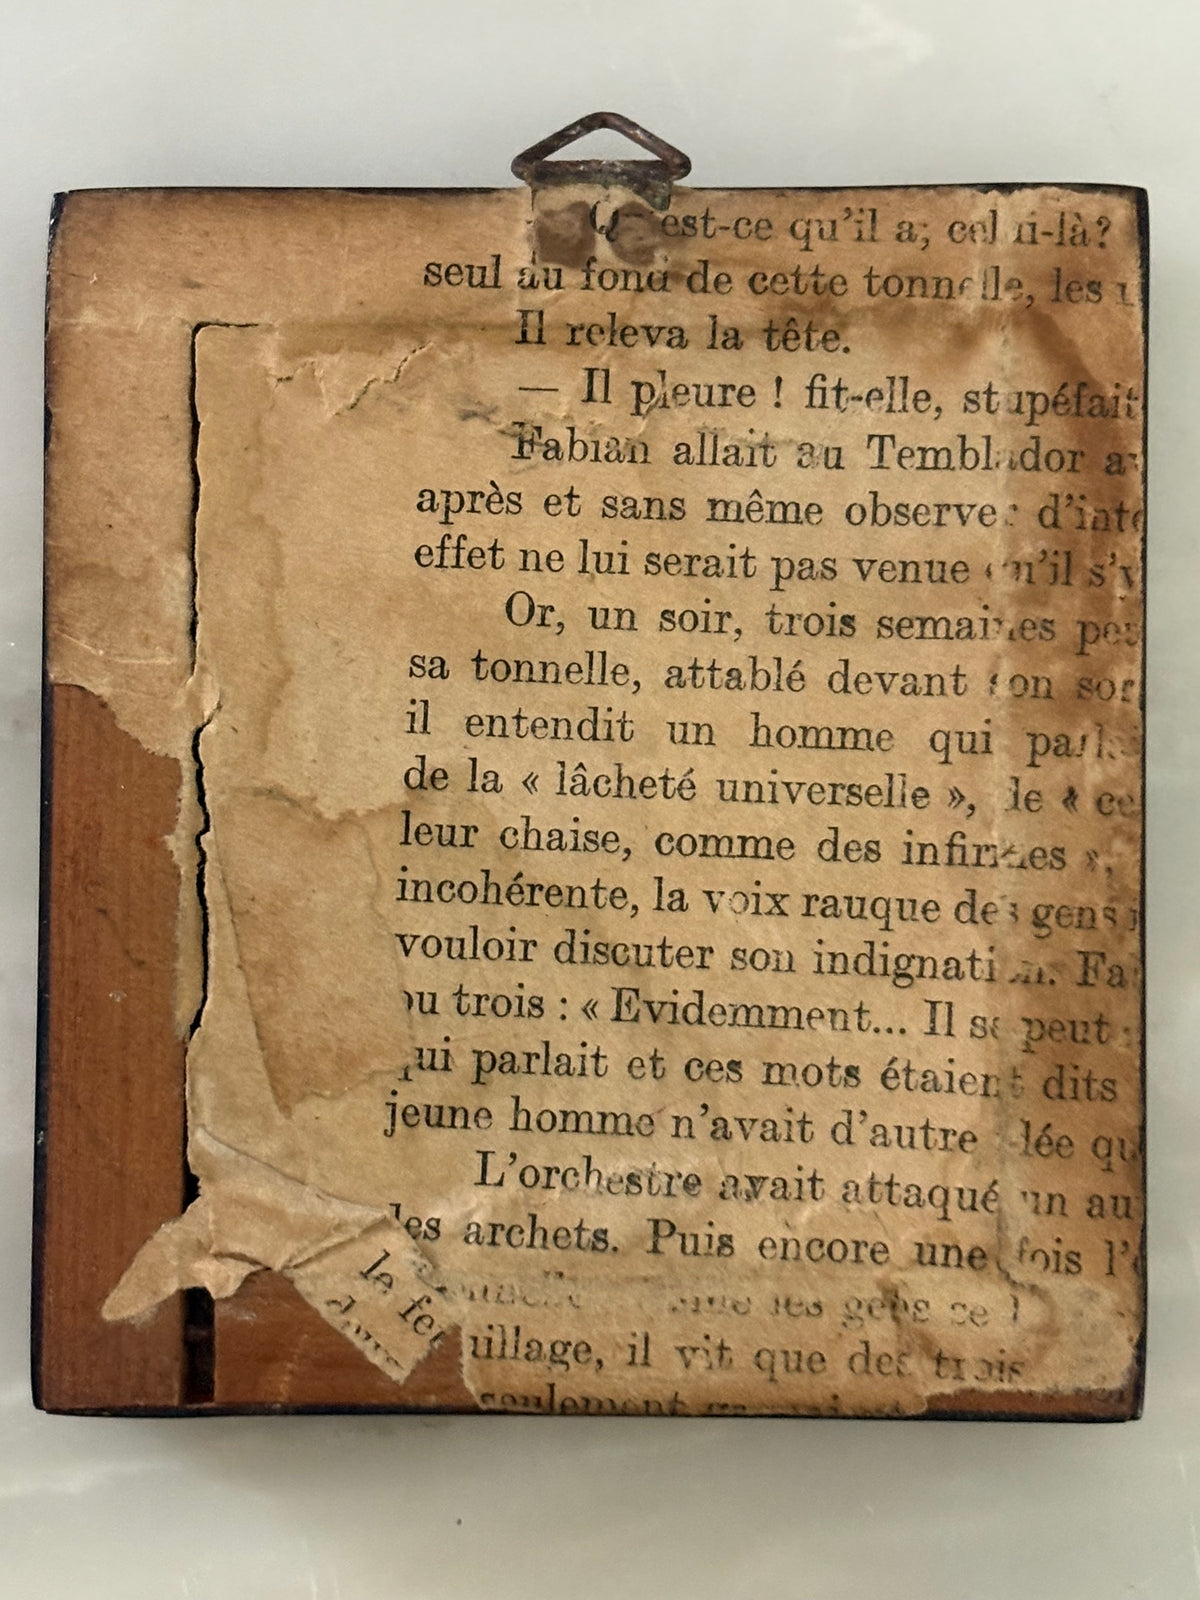 est-ce qu'il a; celui-là?
seul au fond de cette tonnelle, les
Il releva la tête.
— Il pleure ! fit-elle, stupéfait
Fabian allait au Temblador
après et sans même observer d'inte
effet ne lui serait pas venue qu'il s'y
Or, un soir, trois semaines
sa tonnelle, attablé devant son
il entendit un homme qui
de la « lâcheté universelle », le « ce
leur chaise, comme des infirmes »,
incohérente, la voix rauque des gens
vouloir discuter son indignation. Fa
ou trois : « Evidemment... Il se peut
qui parlait et ces mots étaient dits
jeune homme n'avait d'autre idée qu
L'orchestre avait attaqué un au
les archets. Puis encore une fois l'
les gens se
le feu
uillage, il vit que des trois
seulement